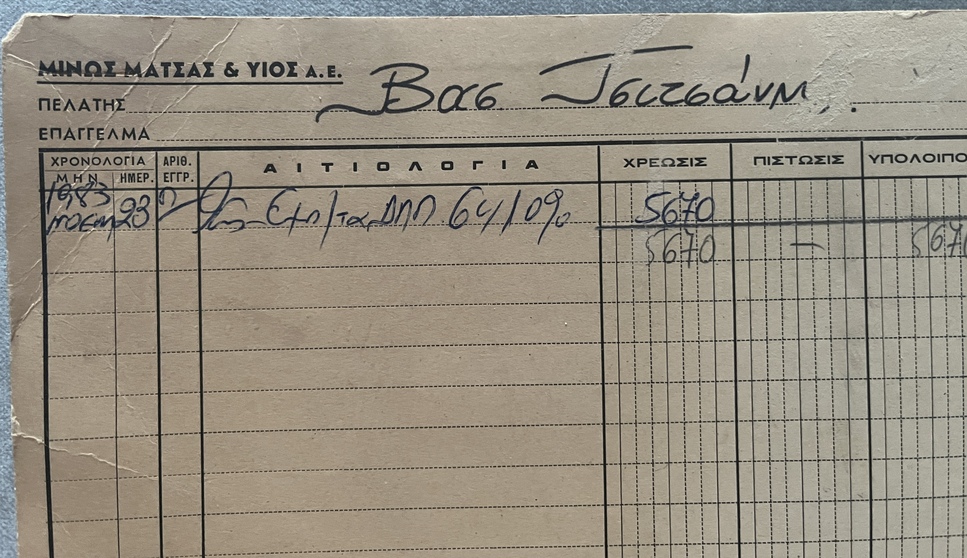 ΜΙΝΩΣ ΜΑΤΣΑΣ & ΥΙΟΣ Α.Ε.
ΠΕΛΑΤΗΣ Βασ Τσιτσάνη
ΕΠΑΓΓΕΛΜΑ
ΧΡΟΝΟΛΟΓΙΑ ΑΡΙΘ. ΕΓΓΡ. ΑΙΤΙΟΛΟΓΙΑ ΧΡΕΩΣΙΣ ΠΙΣΤΩΣΙΣ ΥΠΟΛΟΙΠΟ
ΜΗΝ ΗΜΕΡ.
1983
23 ΔΠΠ 64/ 5670
5670 — 5670